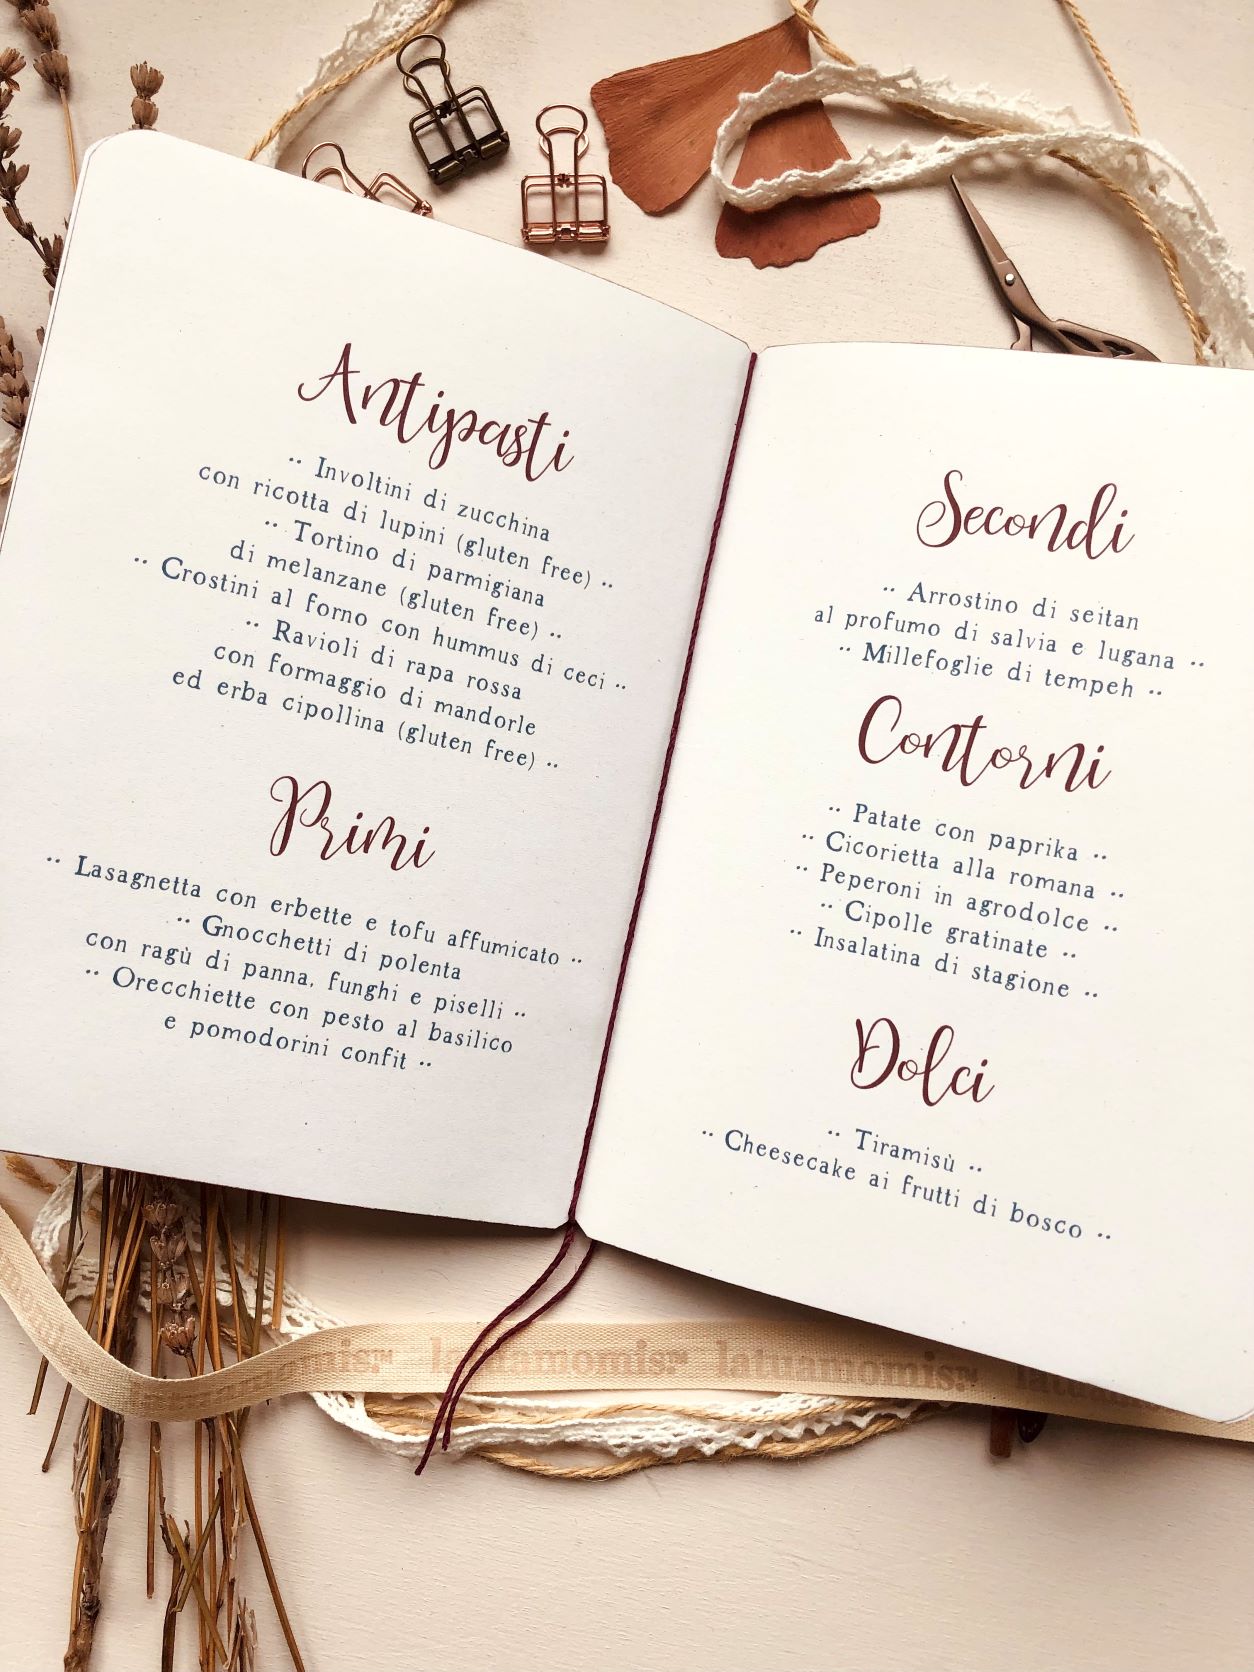 Antipasti
·· Involtini di zucchina
con ricotta di lupini (gluten free) ··
·· Tortino di parmigiana
di melanzane (gluten free) ··
·· Crostini al forno con hummus di ceci ··
·· Ravioli di rapa rossa
con formaggio di mandorle
ed erba cipollina (gluten free) ··
Primi
·· Lasagnetta con erbette e tofu affumicato ··
·· Gnocchetti di polenta
con ragù di panna, funghi e piselli ··
·· Orecchiette con pesto al basilico
e pomodorini confit ··
Secondi
·· Arrostino di seitan
al profumo di salvia e lugana ··
·· Millefoglie di tempeh ··
Contorni
·· Patate con paprika ··
·· Cicorietta alla romana ··
·· Peperoni in agrodolce ··
·· Cipolle gratinate ··
·· Insalatina di stagione ··
Dolci
·· Tiramisù ··
·· Cheesecake ai frutti di bosco ··
latuamomis latuamomis